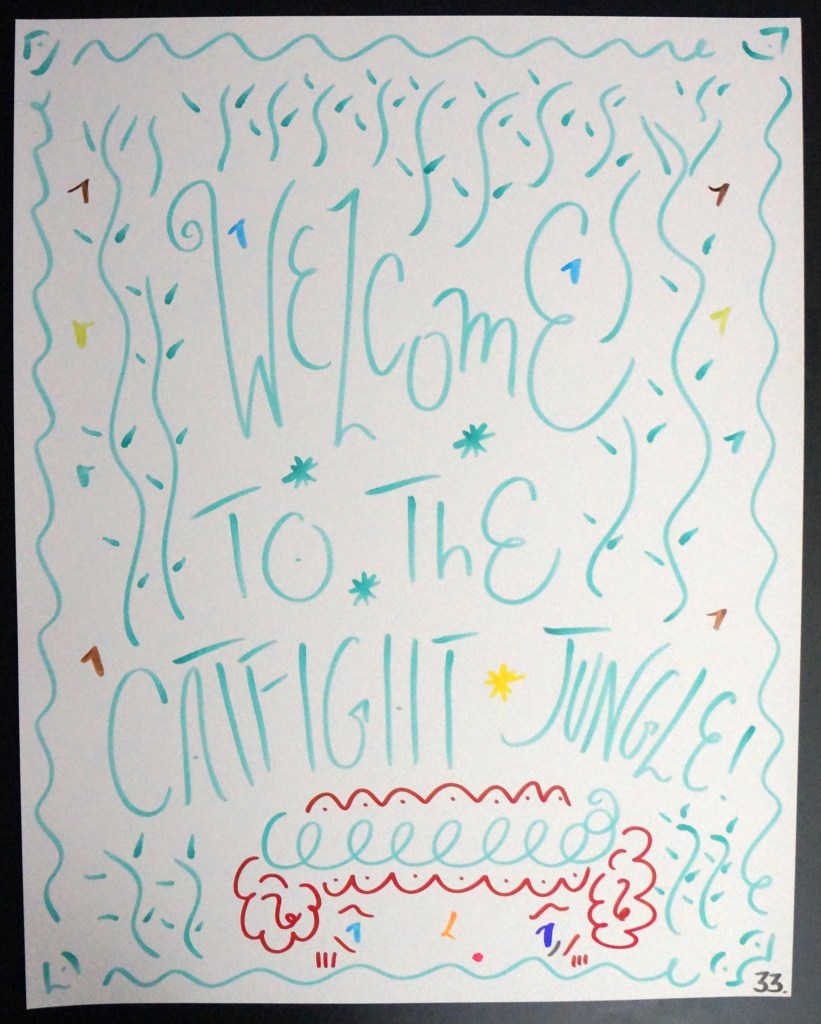 WELCOME
TO THE
CATFIGHT JUNGLE!
33.